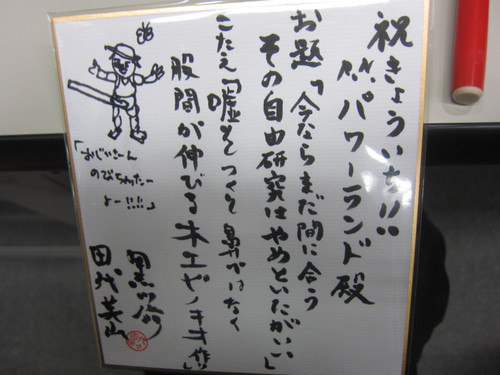 祝きょういち!!
パワーランド殿
お題「今ならまだ間に合う
その自由研究はやめといたがいい」
こたえ「嘘をつくと鼻がなく
股間が伸びる木工ピノキオ作り」
「おじいさーん
のびちゃったー
よー!!!」
田代英山